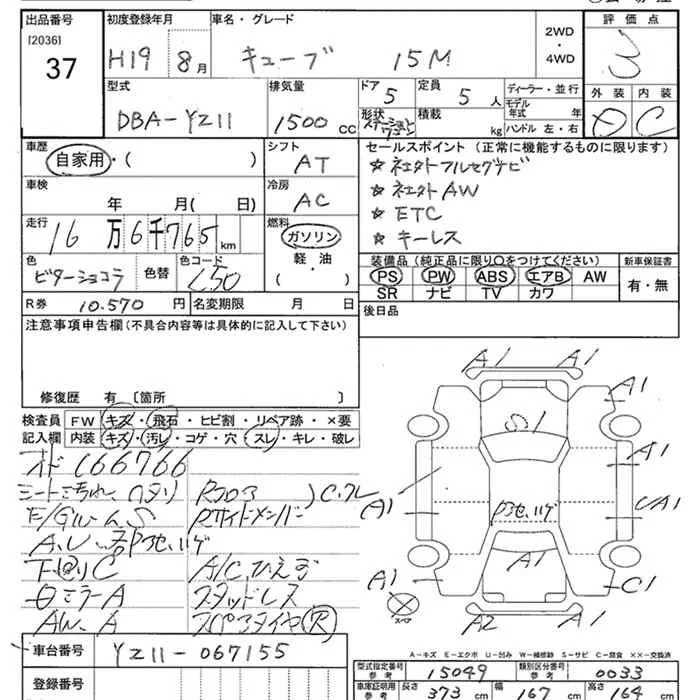 出品番号 初度登録年月 車名・グレード 評価点
[2036] 37
H19 8月 キューブ 15M
2WD・4WD
3
外装 内装
D C
型式 DBA-YZ11
排気量 1500 CC
ドア 5 定員 5 人
形状 ステーションワゴン 積載 kg
ディーラー・並行
モデル年式 年
ハンドル 左・右
車歴 自家用・( )
シフト AT
車検 年 月( 日)
冷房 AC
走行 16万6千765km
燃料 ガソリン 軽・油 ( )
色 ビターショコラ 色替 色コード L50
R券 10.570 円 名変期限 月 日
セールスポイント (正常に機能するものに限ります)
☆ 社外フルセグナビ
☆ 社外AW
☆ ETC
☆ キーレス
装備品(純正品に限り○をつけてください) 新車保証書
PS PW ABS エアB AW 有・無
SR ナビ TV カワ
後日品
注意事項申告欄(不具合内容等は具体的に記入して下さい)
修復歴 有 〔箇所 〕
検査員 FW キズ・飛石・ヒビ割・リペア跡・×要
記入欄 内装 キズ・汚レ・コゲ・穴・スレ・キレ・破レ
オド 166766
シート汚れ、ヘタリ
下回りC A/C、ひえず
ミラーA スタッドレス
AW、A スペアタイヤ R
A1 A1
A1
S1
A1
A1 UA1
A1
A1 C1
スペア
A2 A1
A-キズ E-エクボ U-凹み W-補修跡 S-サビ C-腐食 ××-交換済
車台番号 YZ11-067155
登録番号
型式指定番号 参考 15049 類別区分番号 参考 0033
車庫証明用 参考 長さ 373 cm 幅 167 cm 高さ 164 cm